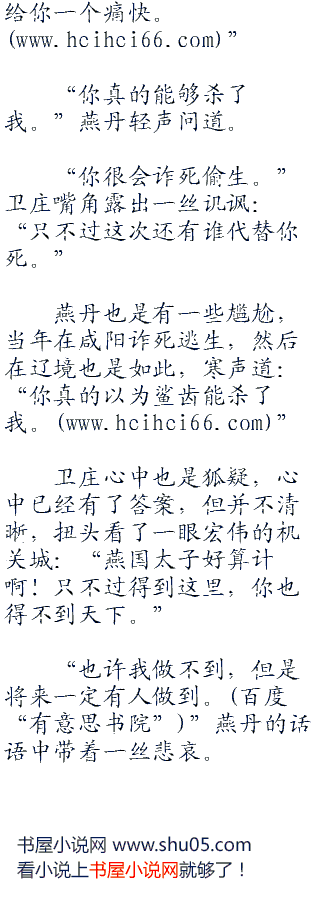 给你一个痛快。
(www.hcihci66.com)”
“你真的能够杀了
我。”燕丹轻声问道。
“你很会诈死偷生。”
卫庄嘴角露出一丝讥讽：
“只不过这次还有谁代替你
死。”
燕丹也是有一些尴尬，
当年在咸阳诈死逃生，然后
在辽境也是如此，寒声道：
“你真的以为鲨齿能杀了
我。(www.hcihci66.com)”
卫庄心中也是狐疑，心
中已经有了答案，但并不清
晰，扭头看了一眼宏伟的机
关城：“燕国太子好算计
啊！只不过得到这里，你也
得不到天下。”
“也许我做不到，但是
将来一定有人做到。(百度
“有意思书院”)”燕丹的话
语中带着一丝悲哀。
书屋小说网 www.shu05.com
看小说上书屋小说网就够了！